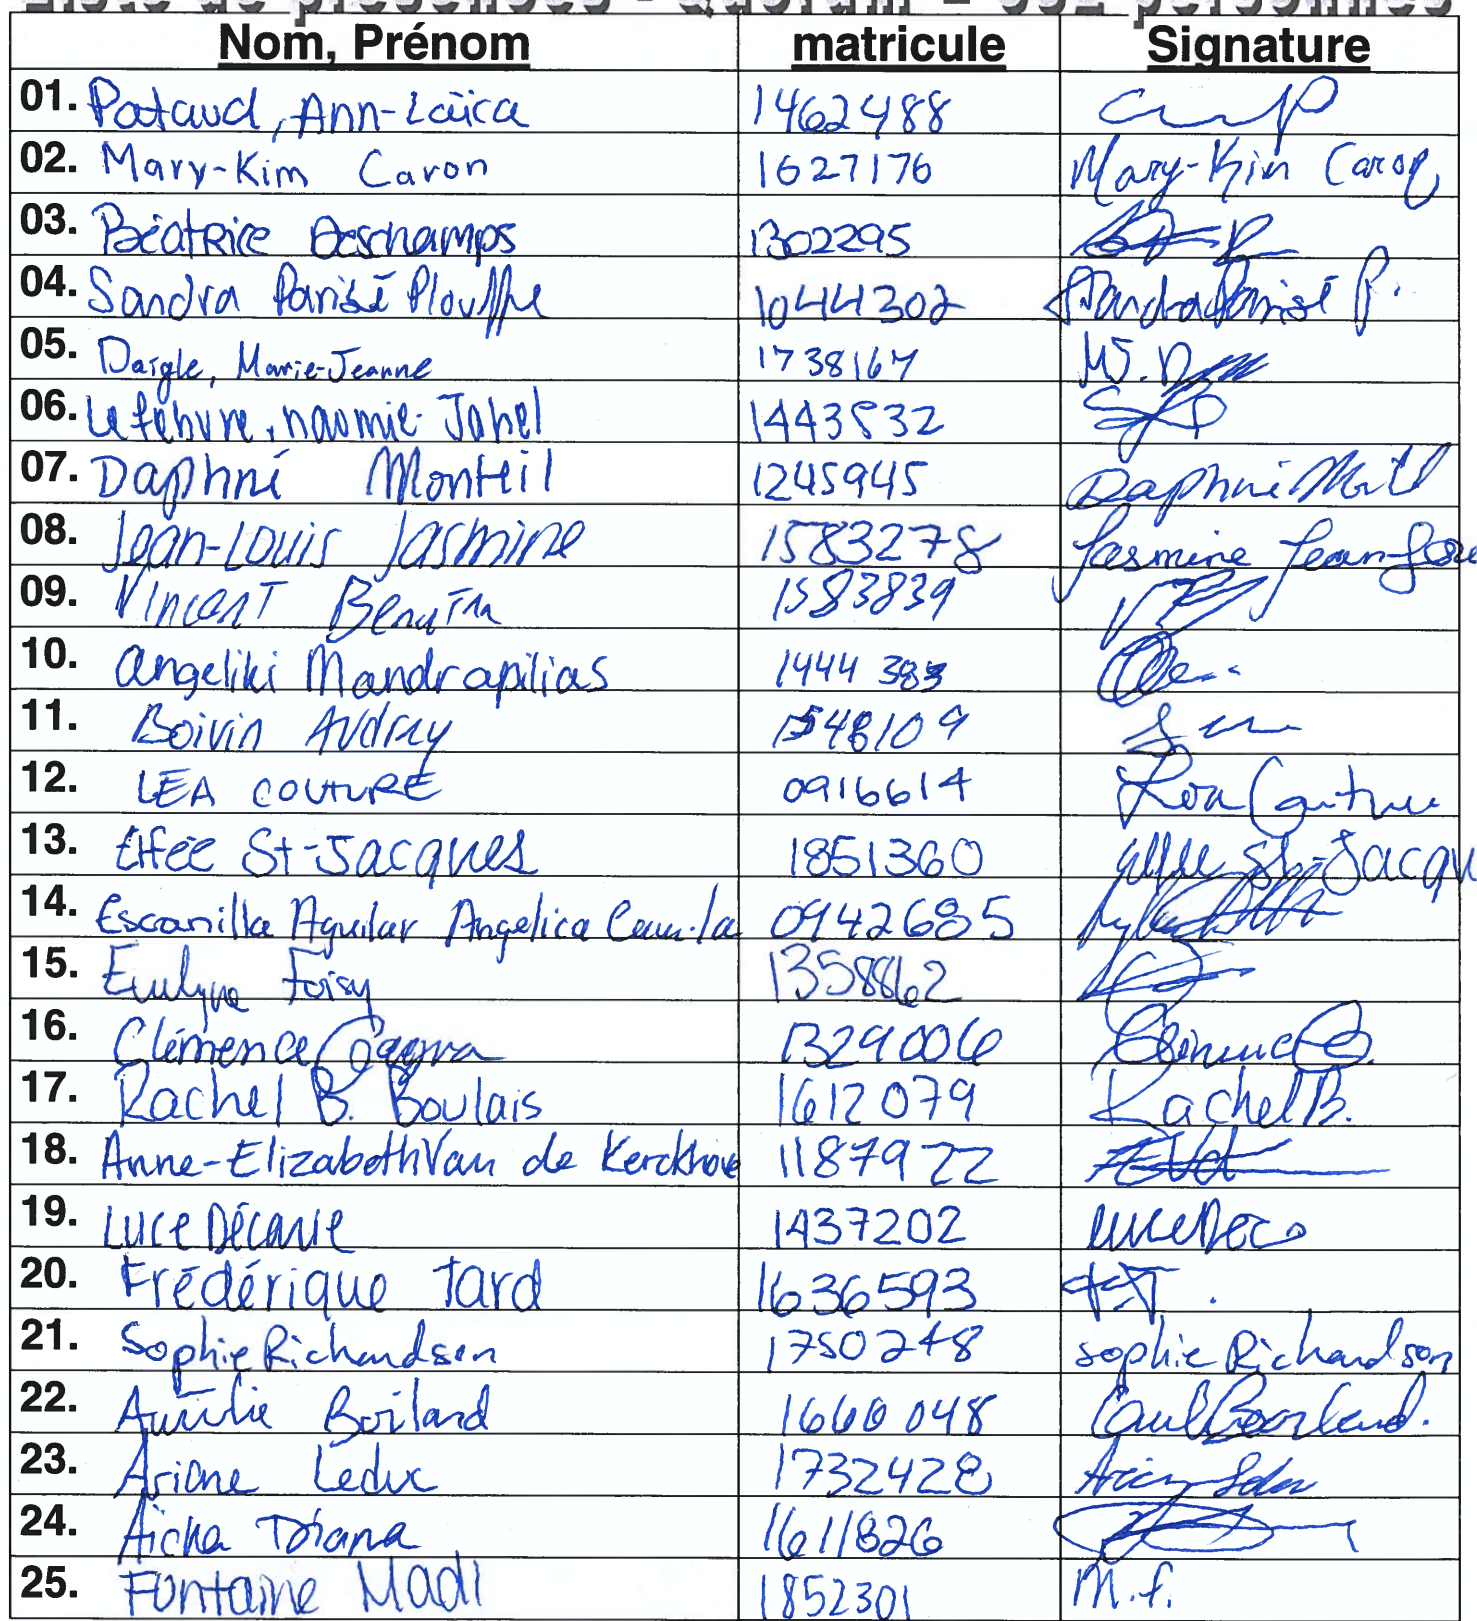 Liste de présences - Quorum - 
Nom, Prénom matricule Signature
01. Pataud, Ann-Laïca 1462488
02. Mary-Kim Caron 1627176 Mary-Kim Caron
03. Béatrice Deschamps 1302295
04. Sandra Parisé Plouffe 1044302 Sandra Parisé P.
05. Daigle, Marie-Jeanne 1738167
06. Lefebvre, naomie-Jahel 1443832
07. Daphné Monteil 1245945 Daphné
08. Jean-Louis Jasmine 1583278 Jasmine Jean-Lou
09. Vincent 1583839
10. Angeliki Mandrapilias 1444
11. Boivin Audrey 1548109
12. LEA COUTURE 0916614 Léa Couture
13. Elfée St-Jacques 1851360 St-Jacqu
14. Escanilla Aguilar Angelica Camila 0942685
15. Evelyne Foisy 1358862
16. Clémence Gagna 1329006
17. Rachel B. Boulais 1612079 Rachel B.
18. Anne-Elizabeth Van de Kerckhove 1187922
19. Luce Décarie 1437202
20. Frédérique Tard 1636593 F.T.
21. Sophie Richardson 1750248 sophie Richardson
22. Aurélie Boilard 1660048
23. Ariane Leduc 1732428
24. Aicha Diana 1611826
25. Fontaine Madi 1852301 M.f.